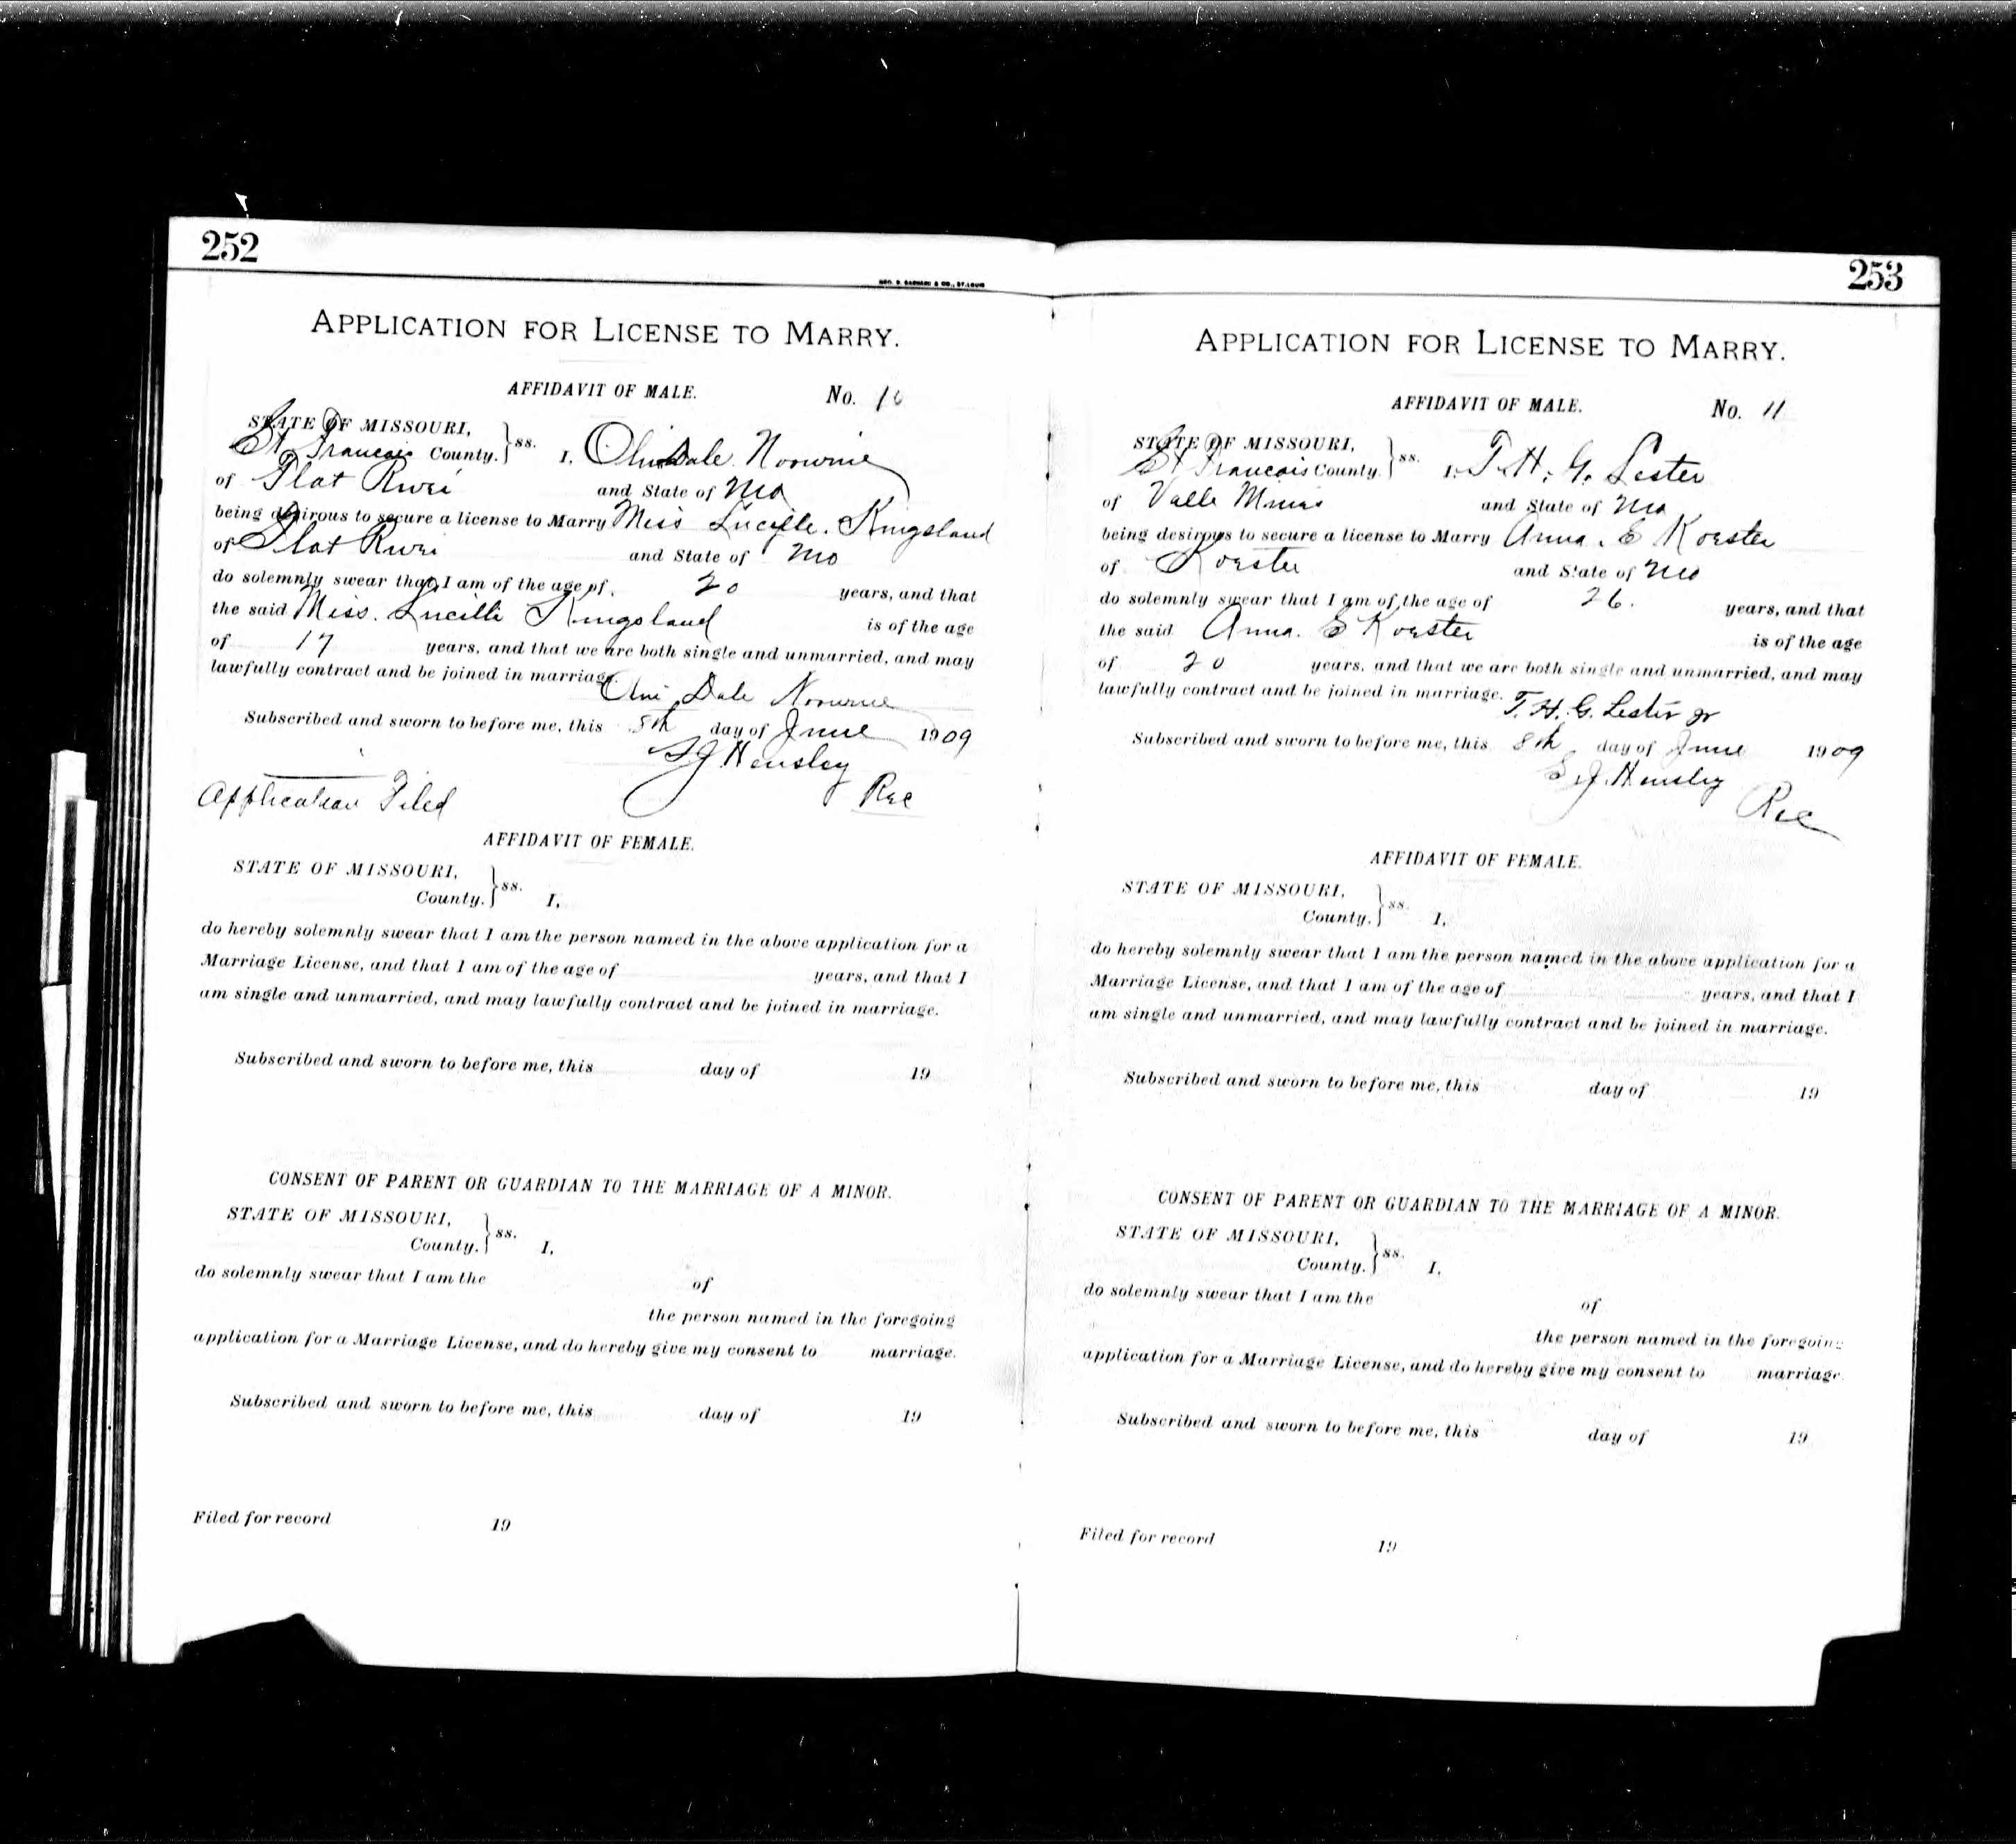 252
GEO. D. BARNARD & CO., ST. LOUIS
APPLICATION FOR LICENSE TO MARRY.
AFFIDAVIT OF MALE. No. 10
STATE OF MISSOURI,
St Francois County. } ss. I, Dale
of Flat River and State of Mo
being desirous to secure a license to Marry Miss Lucille Kingsland
of Flat River and State of Mo
do solemnly swear that I am of the age of 20 years, and that
the said Miss. Lucille Kingsland is of the age
of 17 years, and that we are both single and unmarried, and may
lawfully contract and be joined in marriage.
Dale
Subscribed and sworn to before me, this 8th day of June 1909
S.J. Hensley
Application Filed Rec
AFFIDAVIT OF FEMALE.
STATE OF MISSOURI,
County. } ss. I,
do hereby solemnly swear that I am the person named in the above application for a
Marriage License, and that I am of the age of years, and that I
am single and unmarried, and may lawfully contract and be joined in marriage.
Subscribed and sworn to before me, this day of 19
CONSENT OF PARENT OR GUARDIAN TO THE MARRIAGE OF A MINOR.
STATE OF MISSOURI,
County. } ss. I,
do solemnly swear that I am the of
the person named in the foregoing
application for a Marriage License, and do hereby give my consent to marriage.
Subscribed and sworn to before me, this day of 19
Filed for record 19
253
APPLICATION FOR LICENSE TO MARRY.
AFFIDAVIT OF MALE. No. 11
STATE OF MISSOURI,
St Francois County. } ss. I, T. H. G. Lester
of Valle Mines and State of Mo
being desirous to secure a license to Marry Anna. E Koester
of Koester and State of Mo
do solemnly swear that I am of the age of 26. years, and that
the said Anna. E Koester is of the age
of 20 years, and that we are both single and unmarried, and may
lawfully contract and be joined in marriage.
T. H. G. Lester Jr
Subscribed and sworn to before me, this 8th day of June 1909
S.J. Hensley
Rec
AFFIDAVIT OF FEMALE.
STATE OF MISSOURI,
County. } ss. I,
do hereby solemnly swear that I am the person named in the above application for a
Marriage License, and that I am of the age of years, and that I
am single and unmarried, and may lawfully contract and be joined in marriage.
Subscribed and sworn to before me, this day of 19
CONSENT OF PARENT OR GUARDIAN TO THE MARRIAGE OF A MINOR.
STATE OF MISSOURI,
County. } ss. I,
do solemnly swear that I am the of
the person named in the foregoing
application for a Marriage License, and do hereby give my consent to marriage
Subscribed and sworn to before me, this day of 19
Filed for record 19